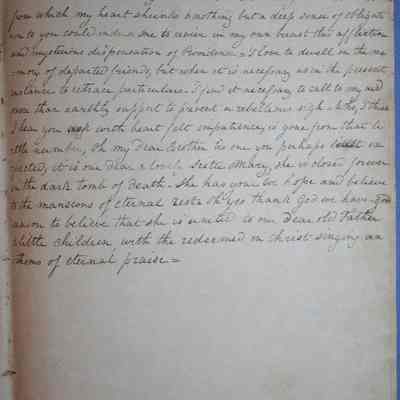 from which my heart shrinks & nothing but a deep sense of obligati
on to you could induce me to review in my own breast this afflictive
and mysterious dispensation of Providence = I love to dwell in the me
mory of departed friends, but when it is necessary as in the present
instance to retrace particulars. I find it necessary to call to my aid
more than earthly support to prevent a rebellious sigh
I hear you ask with heart felt impatience, is gone from that li
ttle number, Oh my dear Brother tis one you perhaps least ex
pected, it is our dear & lovely Sister Mary, she is closed forever
in the dark tomb of death. She has gone we hope and believe
to the mansions of eternal rest. Oh yes thank God we have good
reason to believe that she is united to our Dear old Father
& little children, with the redeemed in Christ singing an
thems of eternal praise =